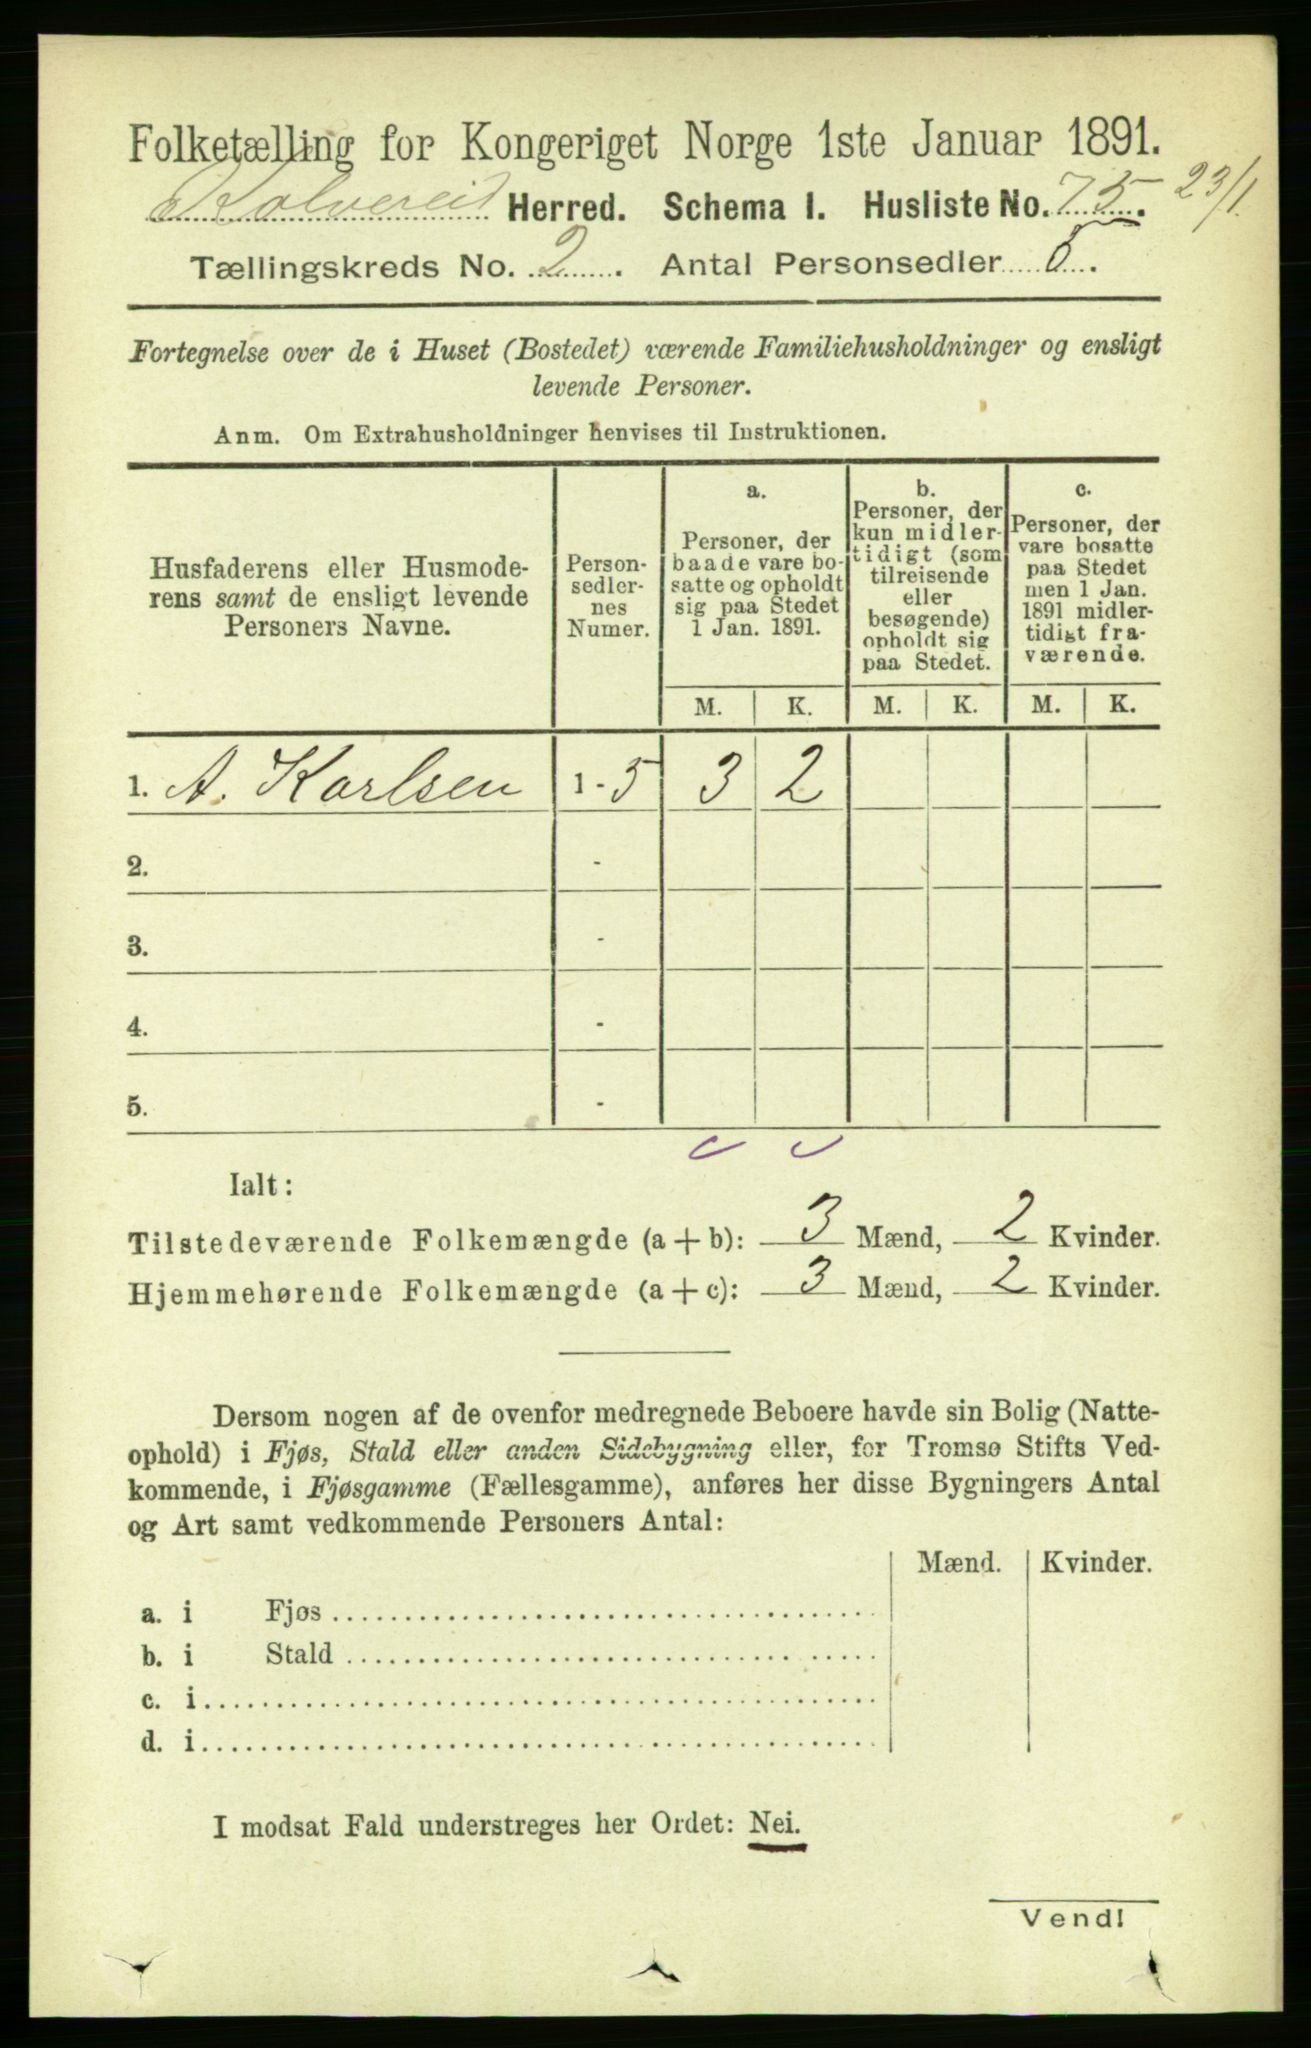 Folketælling for Kongeriget Norge 1ste Januar 1891.
Kolvereid Herred. Schema I. Husliste No. 75. 23/1
Tællingskreds No. 2. Antal Personsedler 5.
Fortegnelse over de i Huset (Bostedet) værende Familiehusholdninger og ensligt
levende Personer.
Anm. Om Extrahusholdninger henvises til Instruktionen.
Husfaderens eller Husmode-
rens samt de ensligt levende
Personers Navne.
Person-
sedler-
nes
Numer.
a.
Personer, der
baade vare bo-
satte og opholdt
sig paa Stedet
1 Jan. 1891.
b.
Personer, der
kun midler-
tidigt (som
tilreisende
eller
besøgende)
opholdt sig
paa Stedet.
c.
Personer, der
vare bosatte
paa Stedet
men 1 Jan.
1891 midler-
tidigt fra-
værende.
M. K. M. K. M. K.
1. A. Karlsen 1 - 5 3 2
2. -
3. -
4. -
5. -
Ialt:
Tilstedeværende Folkemængde (a + b): 3 Mænd, 2 Kvinder.
Hjemmehørende Folkemængde (a + c): 3 Mænd, 2 Kvinder.
Dersom nogen af de ovenfor medregnede Beboere havde sin Bolig (Natte-
ophold) i Fjøs, Stald eller anden Sidebygning eller, for Tromsø Stifts Ved-
kommende, i Fjøsgamme (Fællesgamme), anføres her disse Bygningers Antal
og Art samt vedkommende Personers Antal:
Mænd. Kvinder.
a. i Fjøs
b. i Stald
c. i
d. i
I modsat Fald understreges her Ordet: Nei.
Vend!